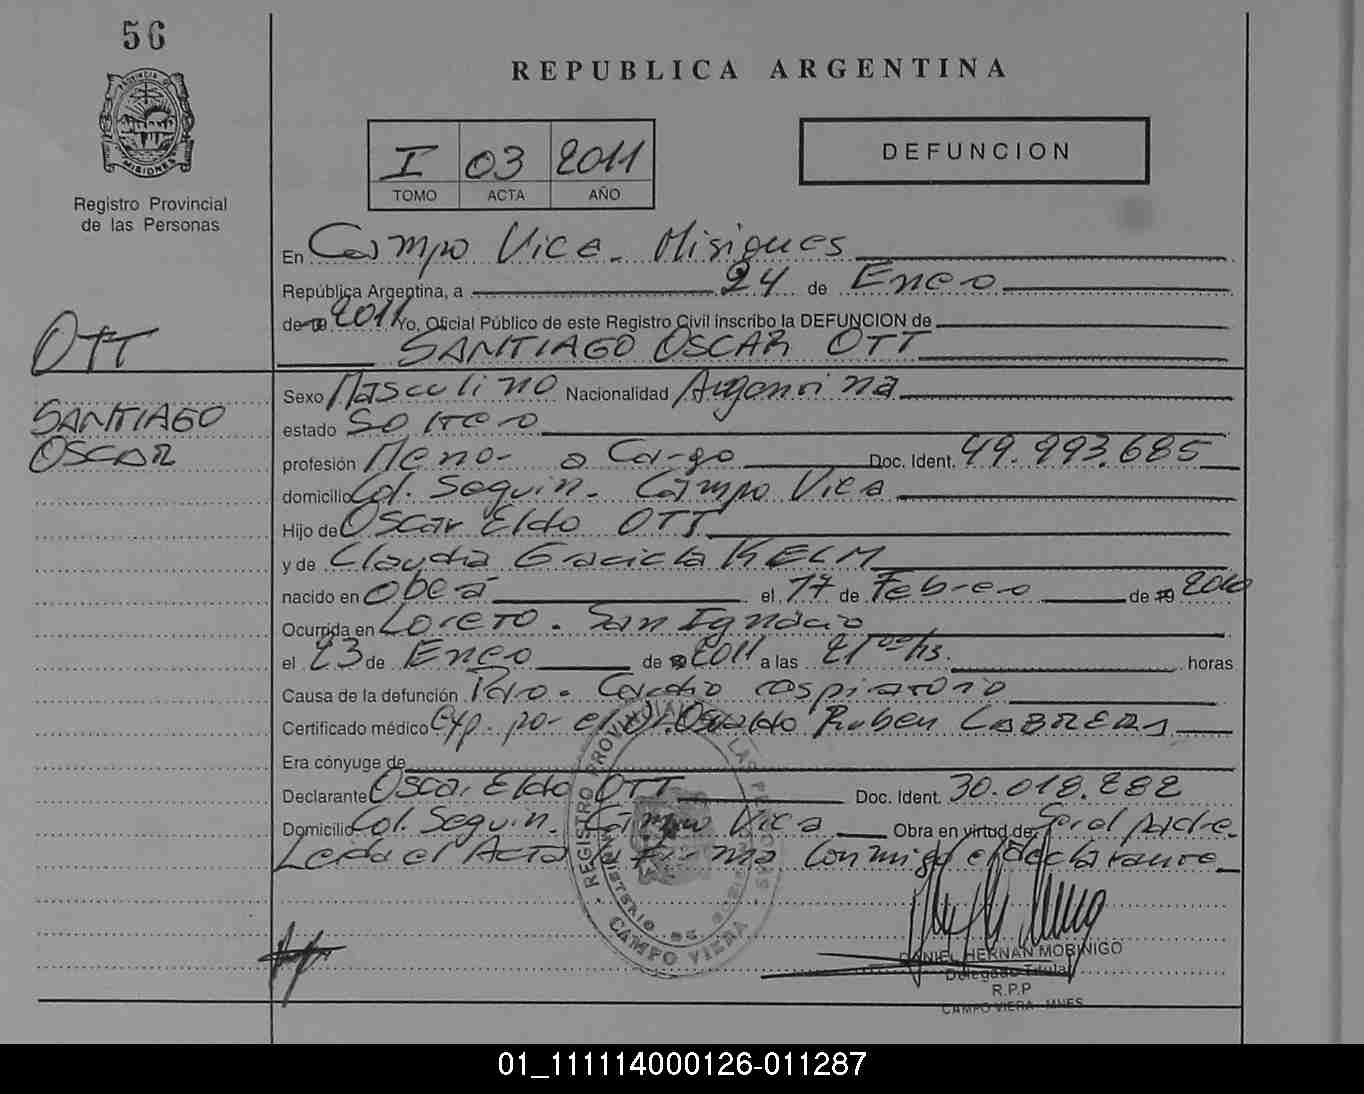 56
PROVINCIA DE
MISIONES
Registro Provincial
de las Personas
REPUBLICA ARGENTINA
I 03 2011
TOMO ACTA AÑO
DEFUNCION
En Campo Viera. Misiones
República Argentina, a 24 de Enero
de 2011 Yo, Oficial Público de este Registro Civil inscribo la DEFUNCION de
SANTIAGO OSCAR OTT
OTT
SANTIAGO
OSCAR
Sexo Masculino Nacionalidad Argentina
estado Soltero
profesión Menor a Cargo Doc. Ident. 49.993.685
domicilio Col. Seguin. Campo Viera
Hijo de Oscar Eldo OTT
y de Claudia Graciela KELM
nacido en Obera el 17 de Febrero de 19 2010
Ocurrida en Loreto. San Ignacio
el 23 de Enero de 2011 a las 21 00 hs. horas
Causa de la defunción Paro. Cardio respiratorio
Certificado médico Exp. por el Dr. Osvaldo Ruben CABRERA
Era cónyuge de
Declarante Oscar Eldo OTT Doc. Ident. 30.018.282
Domicilio Col. Seguin. Campo Viera Obra en virtud de: Ser el padre.
Leida el Acta la Firma conmigo el declarante
REGISTRO PROVINCIAL DE LAS PERSONAS
MINISTERIO DE
CAMPO VIERA
DANIEL HERNAN MOBINIGO
Delegado Titular
R.P.P
CAMPO VIERA - MNES
01_111114000126-011287